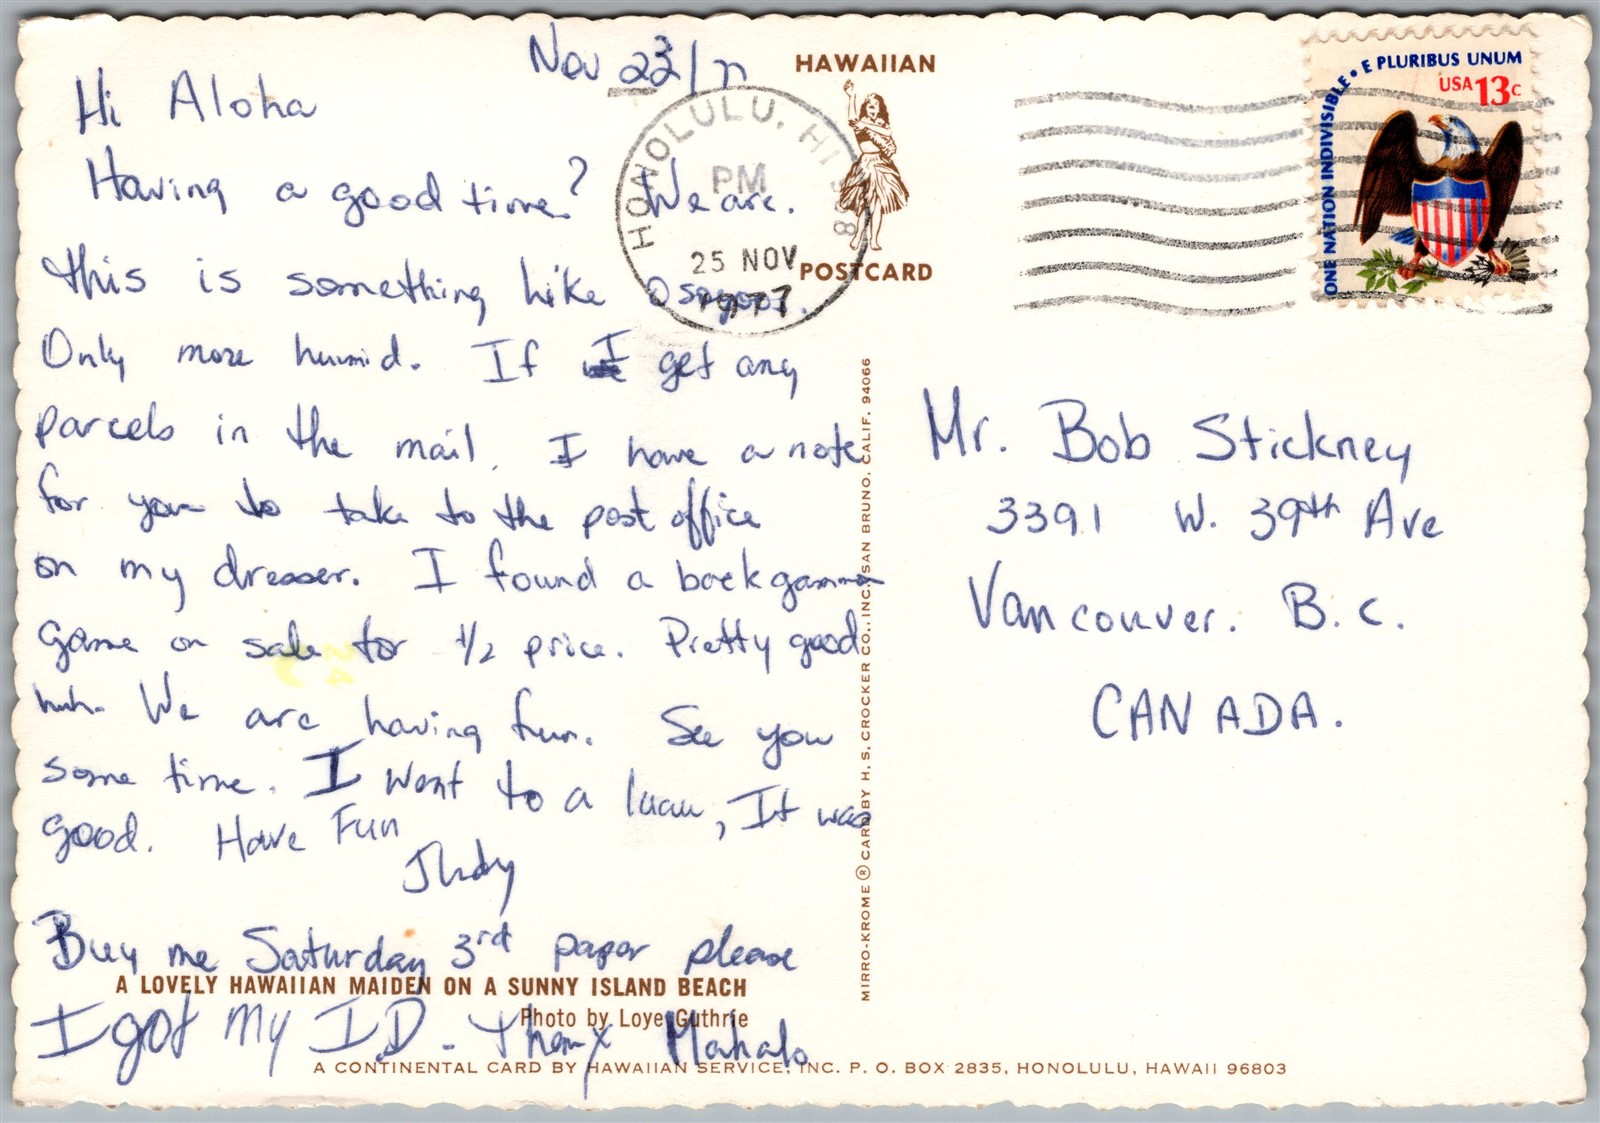 Nov 23/77
Hi Aloha
Having a good time? We are.
this is something like Osoyoos.
Only more humid. If I get any
parcels in the mail. I have a note
for you to take to the post office
on my dresser. I found a backgammon
game on sale for 1/2 price. Pretty good
huh. We are having fun. See you
some time. I went to a luau, It was
good. Have Fun
Judy
Buy me Saturday 3rd paper please
I got my I.D. - Thanx Mahalo
HAWAIIAN
POSTCARD
HONOLULU, HI
PM
25 NOV
1977
E PLURIBUS UNUM
USA 13c
ONE NATION INDIVISIBLE •
Mr. Bob Stickney
3391 W. 39th Ave
Vancouver. B.C.
CANADA.
MIRRO-KROME ® CARD BY H. S. CROCKER CO., INC. SAN BRUNO, CALIF. 94066
A LOVELY HAWAIIAN MAIDEN ON A SUNNY ISLAND BEACH
Photo by Loye Guthrie
A CONTINENTAL CARD BY HAWAIIAN SERVICE, INC. P. O. BOX 2835, HONOLULU, HAWAII 96803